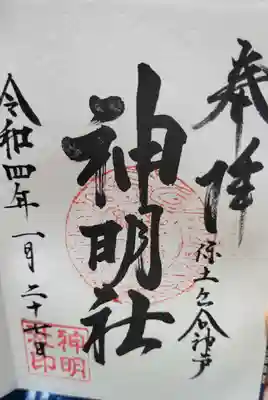 奉拝
神明社
令和四年一月二十七日
神明